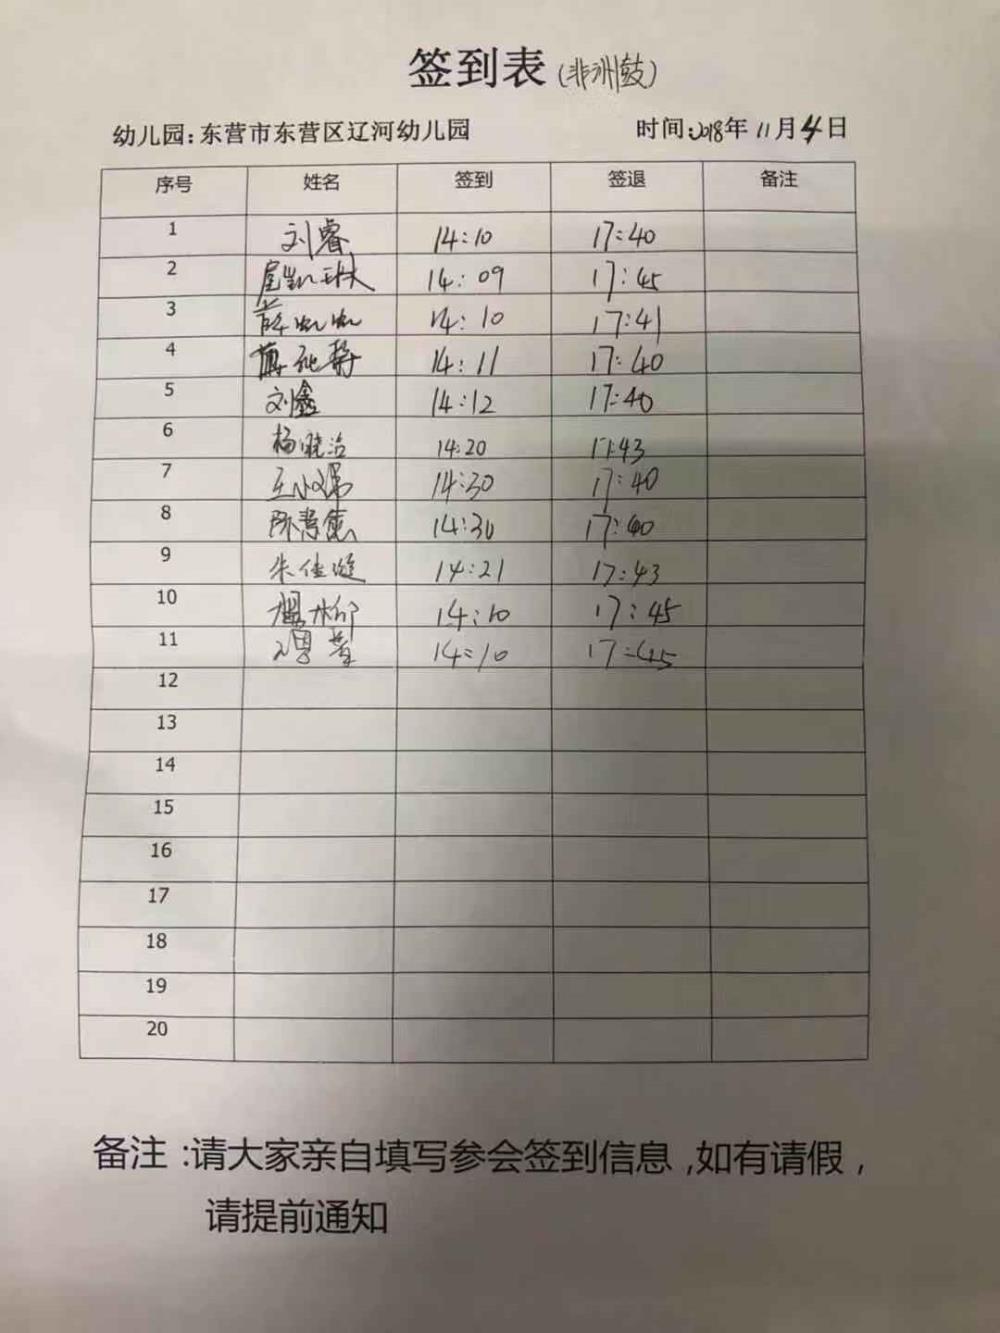 签到表(非洲鼓)
幼儿园:东营市东营区辽河幼儿园 时间:2018年11月4日
序号 姓名 签到 签退 备注
1 刘睿 14:10 17:40
2 14:09 17:45
3 薛 14:10 17:41
4 14:11 17:40
5 刘鑫 14:12 17:40
6 杨晓洁 14:20 17:43
7 王小 14:30 17:40
8 陈 14:30 17:40
9 朱佳 14:21 17:43
10 14:10 17:45
11 14:10 17:45
12
13
14
15
16
17
18
19
20
备注:请大家亲自填写参会签到信息,如有请假,
请提前通知